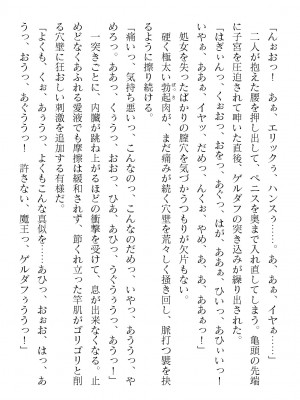 「んぉおっ！　あぁ、エリックぅ、ハンスぅ……。あ、あぁ、イヤぁ……」
　二人が抱えた腰を押し出して、ペニスを奥まで入れ直してしまう。亀頭の先端
に子宮を圧迫されて呻いた直後、ゲルダフの突き込みが繰り出された。
「はぎぃんっ、くぉおっ、おをっ、あぐっ、はが、ああぁ、ひいっ、あひぃいっ！
いやぁ、ああぁっ、イヤッ、だめっ、んくぉ、やめ、あ、あ、あああっ！」
　処女を失ったばかりの膣穴を気づかうつもりが欠片もない。
　硬く極太い勃起肉が、まだ痛みが続く穴壁を荒々しく掻き回し、脈打つ襞を抉
るように擦り続ける。
「痛いっ、気持ち悪いっ、こんなのっ、こんなのだめっ、いやっ、あううっ、や
めろっ。ああっ、くぅううっ、おおっ、ひあ、あひっ、うぐぅううっ！」
　一突きごとに、内臓が跳ね上がるほどの衝撃を受けて、息が出来なくなる。止
めどなくあふれる愛液でも摩擦は緩和されず、節くれ立った竿肌がゴリゴリと削
る穴壁に狂おしい刺激を追加する有様だ。
「よくも、くぉ、あぅうっ、よくもこんな真似を……あひっ、おぉお、はっ、あ
うっ、おうっ、あくううっ！　許さない、魔王っ、ゲルダフぅううっ！」